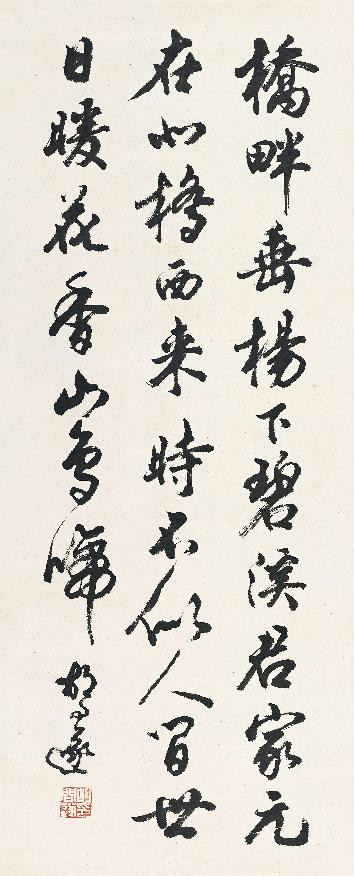 橋畔垂楊下碧溪君家元
在北橋西来時不似人間世
日暖花香山鳥啼
胡问遂